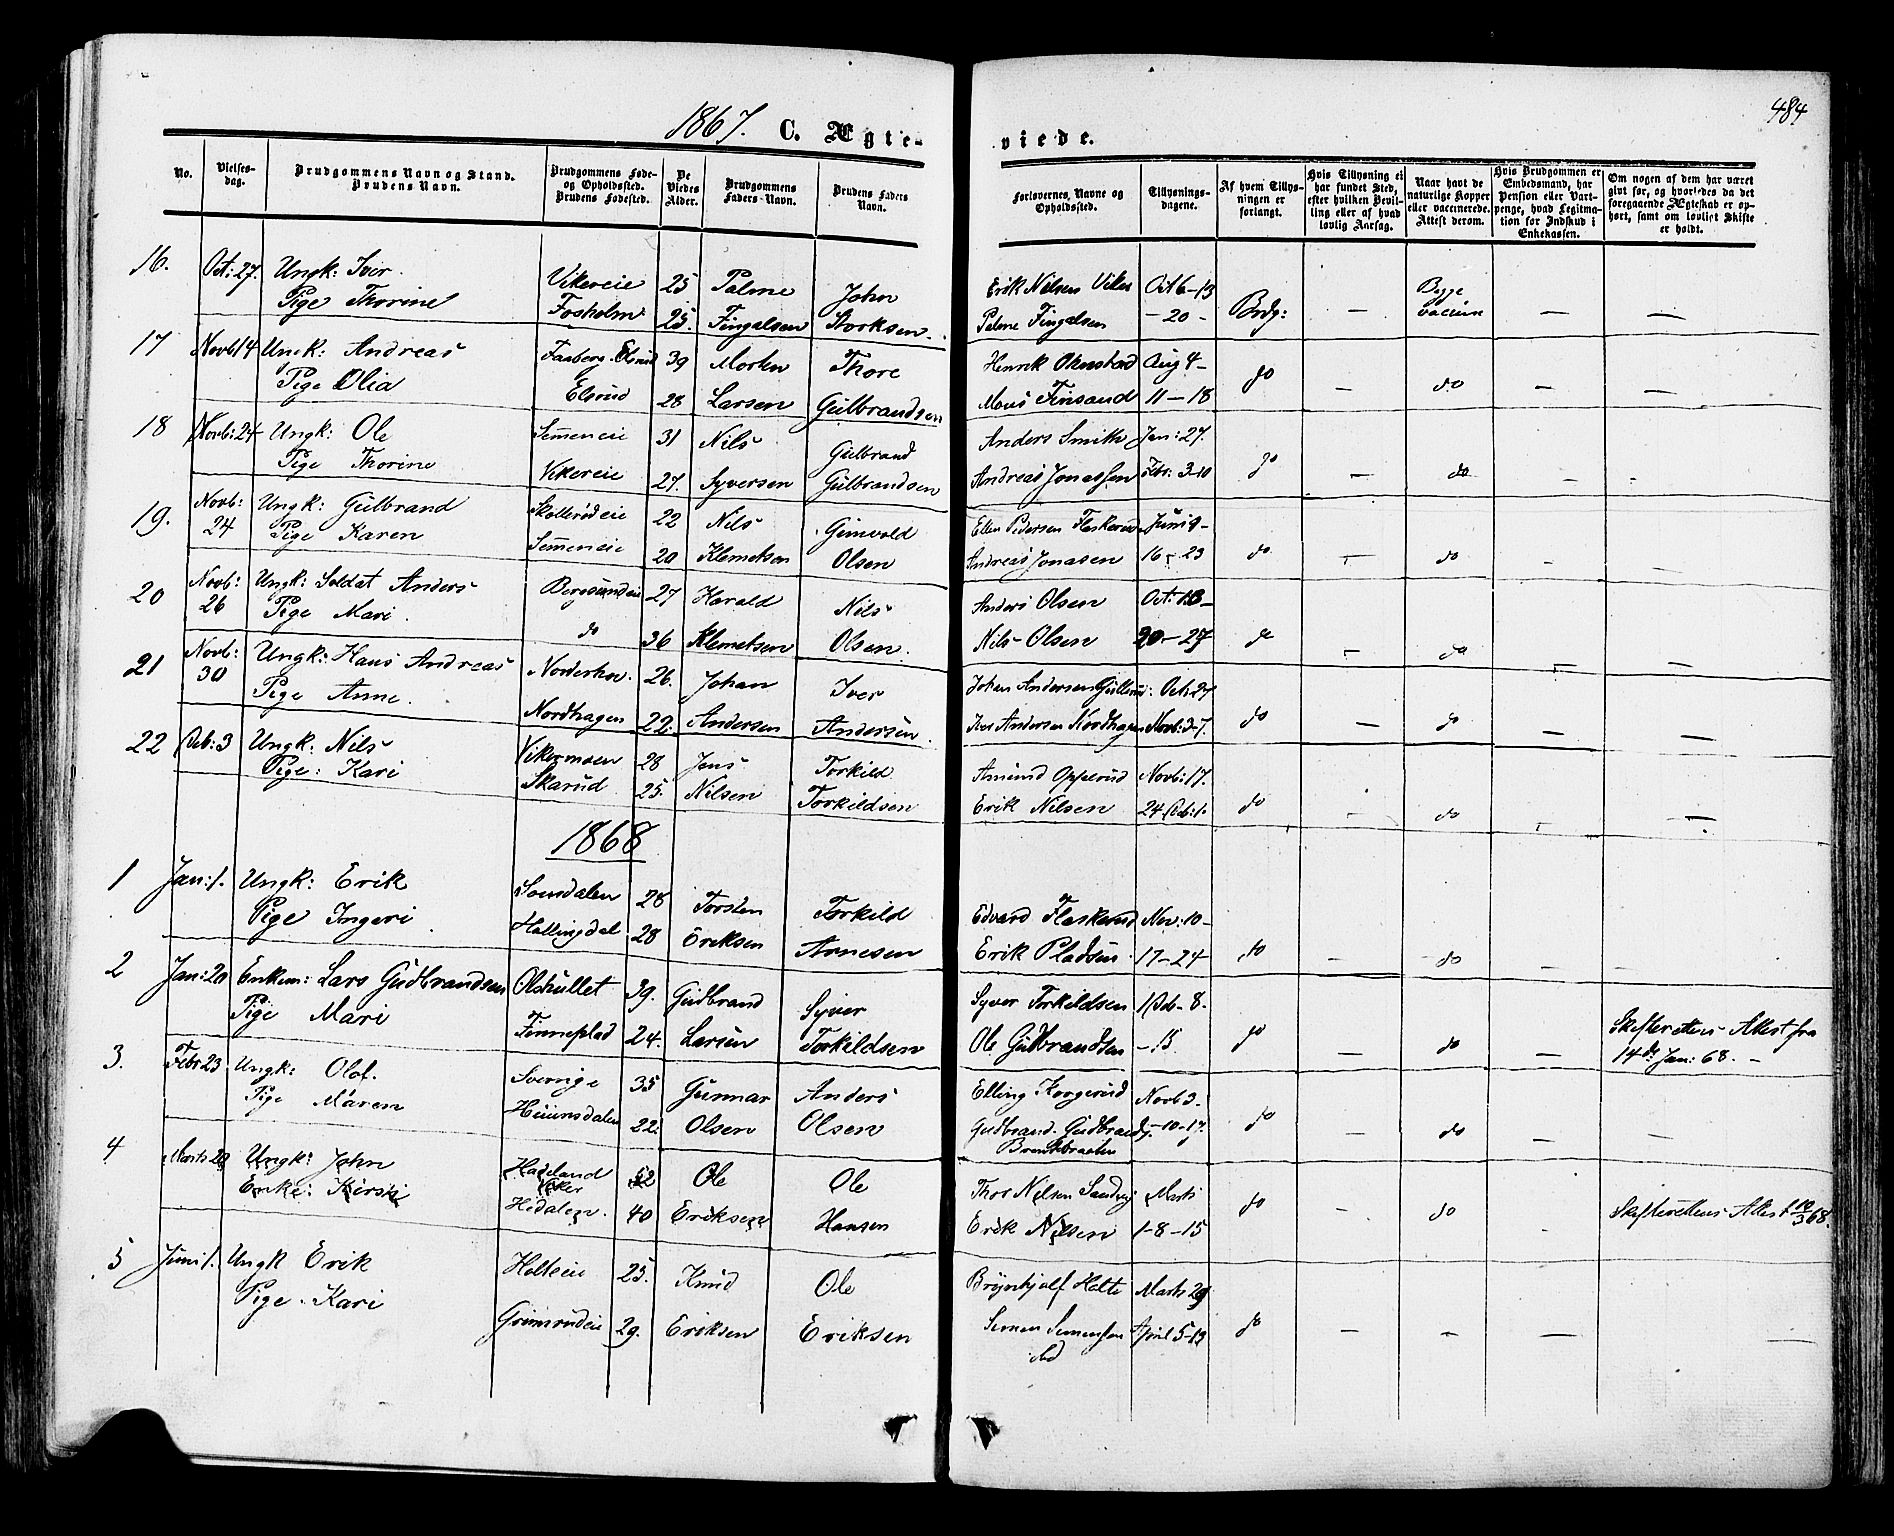 484
1867. C. Ægteviede.
No.
Vielsesdag.
Brudgommens Navn og Stand.
Brudens Navn.
Brudgommens Føde-
og Opholdssted.
Brudens Fødested.
De
Viedes
Alder.
Brudgommens
Faders-Navn.
Brudens Faders
Navn.
Forlovernes, Navne og
Opholdssted.
Tillysnings-
dagene.
Af hvem Tillys-
ningen er
forlangt.
Hvis Tillysning ei
har fundet Sted,
efter hvilken Bevil-
ling eller af hvad
lovlig Aarsag.
Naar havt de
naturlige Kopper
eller vaccinerede.
Attest derom.
Hvis Brudgommen er
Embedsmand, har
Pension eller Vart-
penge, hvad Legitima-
tion for Indskud i
Enkekassen.
Om nogen af dem har været
givt før, og hvorledes da det
foregaaende Ægteskab er op-
hørt, samt om lovligt Skifte
er holdt.
16. Oct: 27. Ungk: Iver Vikereie 25 Palme John Erik Nilsen Oct 6-13 Brdg: — Begge
Pige Thorine Fosholm 25. Fingalsen Storksen. Palme Fingalsen - 20 - vaccine — —
17 Novb 14 Ungk: Andreas Faaberg. Elsrud 39 Morten Thore Henrik Aug 4-
Pige Olia Elsrud 28 Larsen Gulbrandsen Finsand 11-18 do — do — —
18 Novb: 24 Ungk: Ole Semmeneie 31 Nils Gulbrand Anders Smith Jan: 27.
Pige Thorine Vikereie 27. Syversen Gulbrandsen Andreas Jonassen Febr: 3-10 do — do —
19. Novb: 24 Ungk: Gulbrand 22 Nils Ellen Pedersen Flaskerud Juni 9-
Pige Karen Semmeneie 20 Klemetsen Olsen Andreas Jonasen 16-23 do — do
20 Novb: 26 Ungk: Soldat Anders Bergsundeie 27 Harald Nils Anders Olsen Oct: 13-
Pige Mari. do 36 Klemetsen Olsen. Nils Olsen 20-27 do — do — —
21 Novb: 30 Ungk: Hans Andreas Norderhov. 26. Johan Iver Johan Andersen Oct 27
Pige Anne. Nordhagen 22. Andersen Andersen. Iver Andersen Nordhagen Novb: 3-7. do — do — —
22 Deb: 3 Ungk: Nils Vikermoen 28 Jens Torkild Amund Opperud Novb: 17.
Pige: Kari Skarud 25. Nilsen Torkildsen Erik Nilsen 24 Deb: 1. do — do — —
1868
1 Jan: 1. Ungk: Erik Sonsdalen 28 Torsten Torkild Edvard Flaskerud Nov: 10-
Pige Ingeri Hallingdal 28 Eriksen Arnesen Erik Pladsen 17-24 do — do — —
2 Jan: 20 Enkem: Lars Gudbrandsen Olshullet 39. Gudbrand Syver Syver Torkildsen 1 Deb-8.
Pige Mari Finneplad 24. Larsen Torkildsen Ole Gudbrandsen -15 do — do — Skifterettens Attest fra
14de Jan: 68. -
3. Febr 23 Ungk: Olof. Sverrige 35 Gunnar Anders Elling Novb 3.
Pige Maren 22. Olsen Olsen Gudbrand. Gudbrands. -10-17. do — do —
4 Marts 29 Ungk: John Hadeland Ole Ole Thor Nilsen Marts
Enke: Kirsti Hedalen. 40 Eriksen Hansen Erik Nilsen 1-8-15 do - do — Skifterettens Attest 68.
5 Juni 1. Ungk Erik Holteie 25. Knud Ole Brynhjolf Holte Marts 29
Pige. Kari Grimsrudeie 29. Eriksen Eriksen Simen Simensen April 5-19 do — — — —